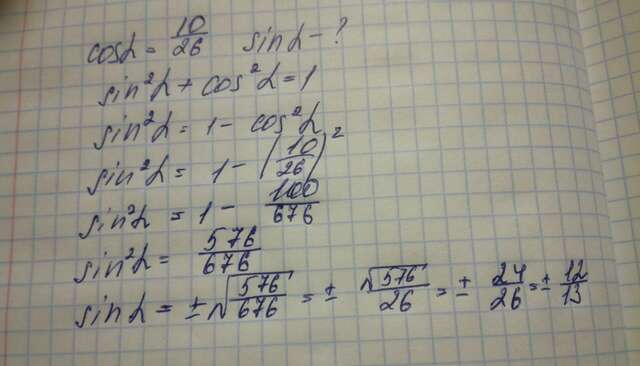 cosα = 10/26   sinα - ?
sin²α + cos²α = 1
sin²α = 1 - cos²α
sin²α = 1 - (10/26)²
sin²α = 1 - 100/676
sin²α = 576/676
sinα = ±√(576/676) = ± √576/26 = ± 24/26 = ± 12/13